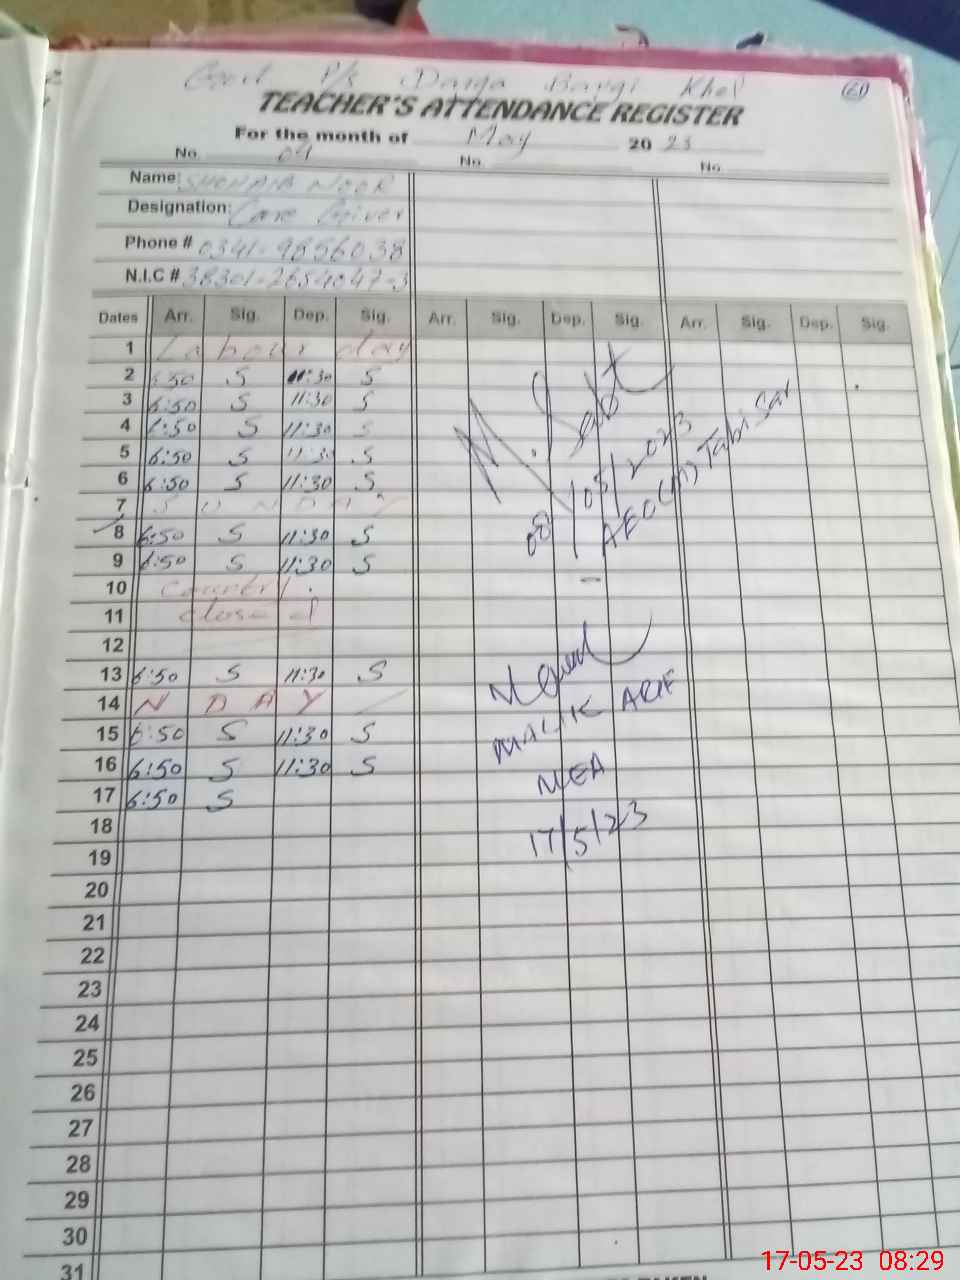 Govt P/S Darga Baygi Khel
TEACHER'S ATTENDANCE REGISTER
For the month of May 2023
No. 04 No. No.
Name: SHONAIB NOOR
Designation: Care Giver
Phone # 0341-9856038
N.I.C # 38301-2654047-3
Dates Arr. Sig. Dep. Sig. Arr. Sig. Dep. Sig. Arr. Sig. Dep. Sig.
1 Labour day
2 6:50 S 11:30 S
3 6:50 S 11:30 S
4 6:50 S 11:30 S
5 6:50 S 11:30 S
6 6:50 S 11:30 S
7 SUNDAY
8 6:50 S 11:30 S
9 6:50 S 11:30 S
10 Country
11 closed
12
13 6:50 S 11:30 S
14 N D A Y
15 6:50 S 11:30 S
16 6:50 S 11:30 S
17 6:50 S
18
19
20
21
22
23
24
25
26
27
28
29
30
31
M. Sabt
08/05/2023
AEO(M) Tabi Sar
MALIK ARIF
MEA
17/5/23
17-05-23 08:29